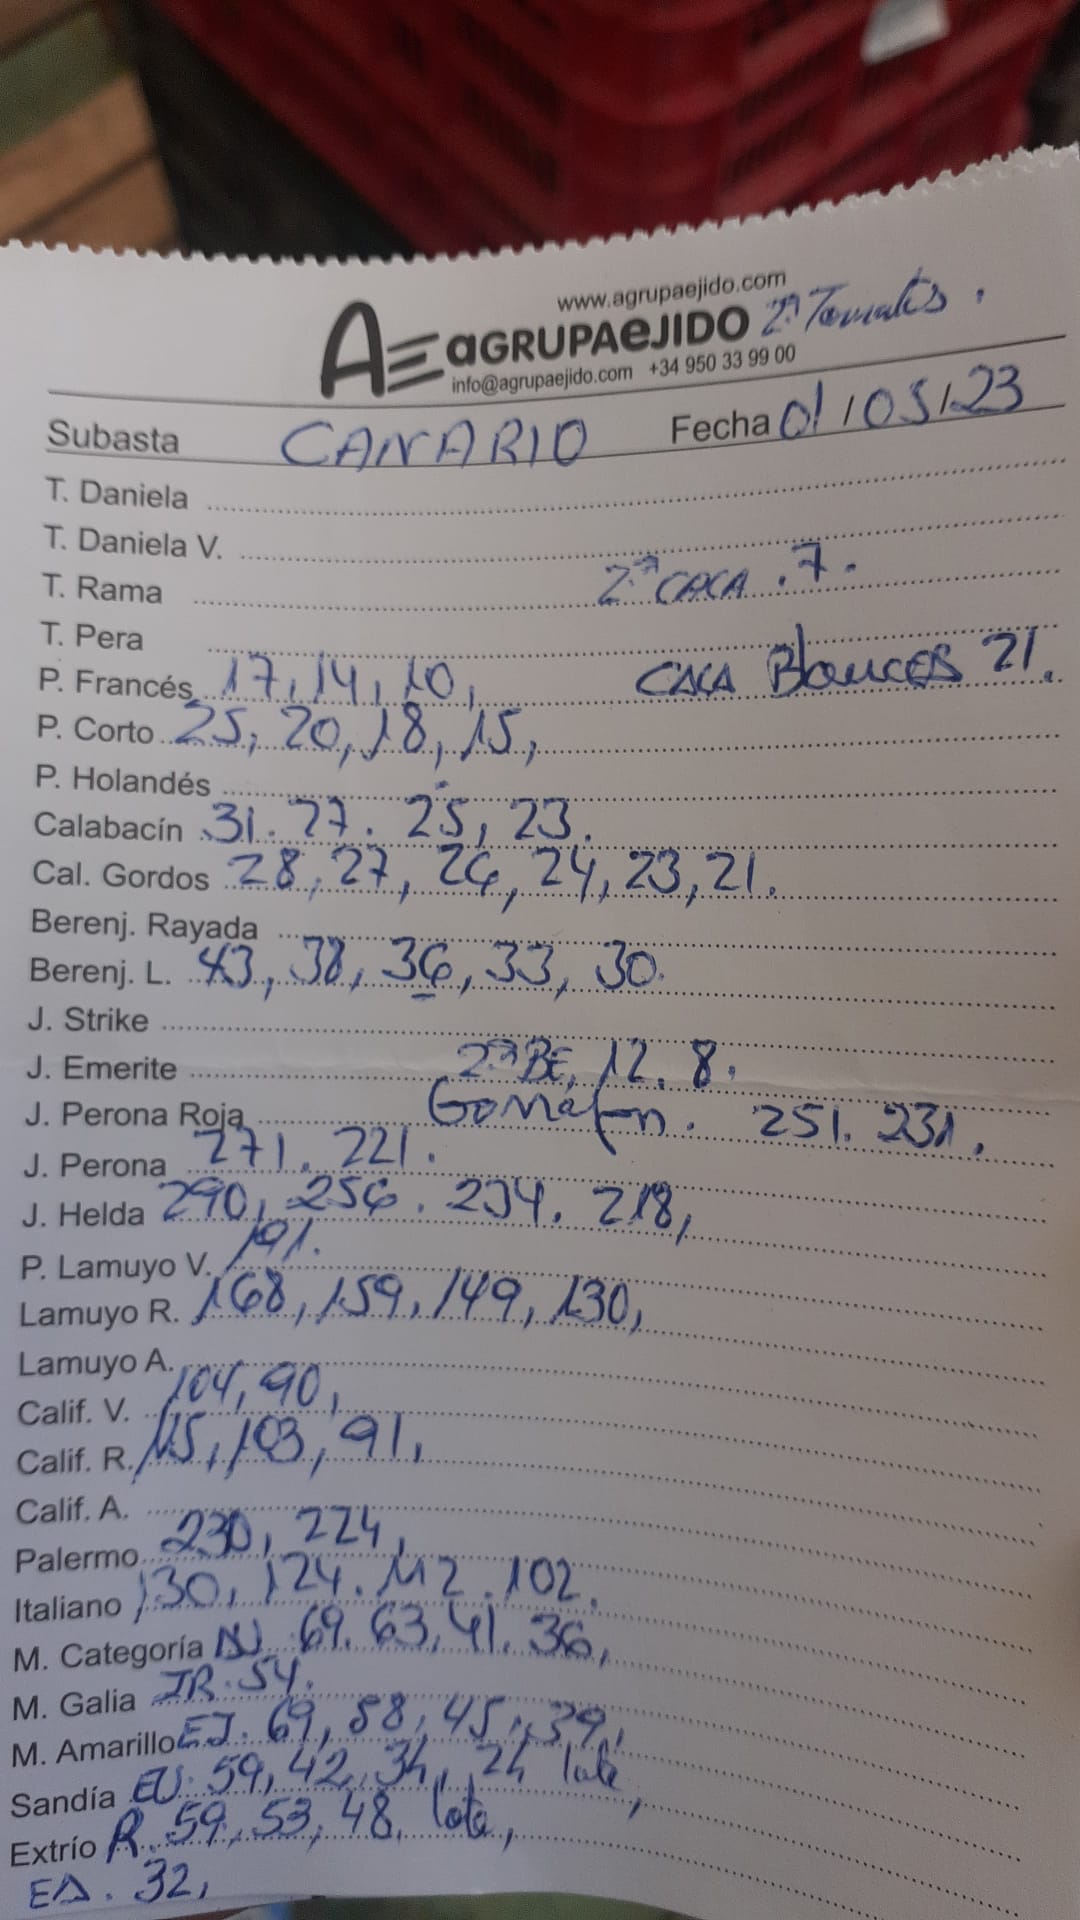 www.agrupaejido.com
AE aGRUPAeJIDO 2ª Tomates.
info@agrupaejido.com +34 950 33 99 00
Subasta CANARIO Fecha 01/05/23
T. Daniela
T. Daniela V.
T. Rama 2ª CACA . 7.
T. Pera
P. Francés 17, 14, 10, CACA Blancos 21.
P. Corto 25, 20, 18, 15,
P. Holandés
Calabacín 31. 27. 25, 23.
Cal. Gordos 28, 27, 26, 24, 23, 21.
Berenj. Rayada
Berenj. L. 43, 38, 36, 33, 30.
J. Strike
J. Emerite 2ª BE, 12. 8.
J. Perona Roja 251. 231.
J. Perona 271. 221.
J. Helda 290, 256. 234. 218,
P. Lamuyo V. 191.
Lamuyo R. 168, 159, 149, 130,
Lamuyo A.
Calif. V. 104, 90,
Calif. R. 115, 103, 91,
Calif. A.
Palermo 230, 224,
Italiano 130, 124. 112. 102.
M. Categoría 69. 63, 41. 36,
M. Galia IR. 54.
M. Amarillo 69, 58, 45, 39,
Sandía 59, 42, 34, 24 lote,
Extrío R. 59, 53, 48. lote,
32,